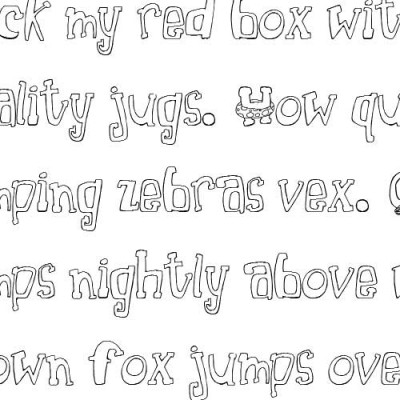 ck my red box wit
ality jugs. How qu
mping zebras vex.
mps nightly above
own fox jumps ove